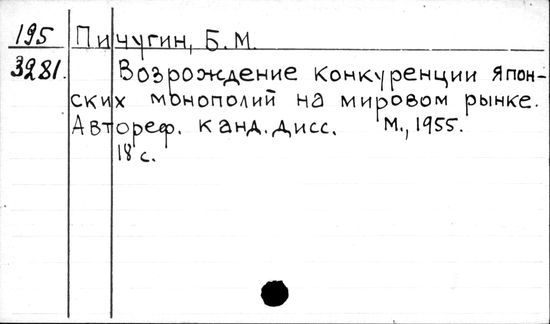 195 Пичугин, Б.М.
3281. Возрождение конкуренции япон-
ских монополий на мировом рынке.
Автореф. канд. дисс. М., 1955.
18 с.